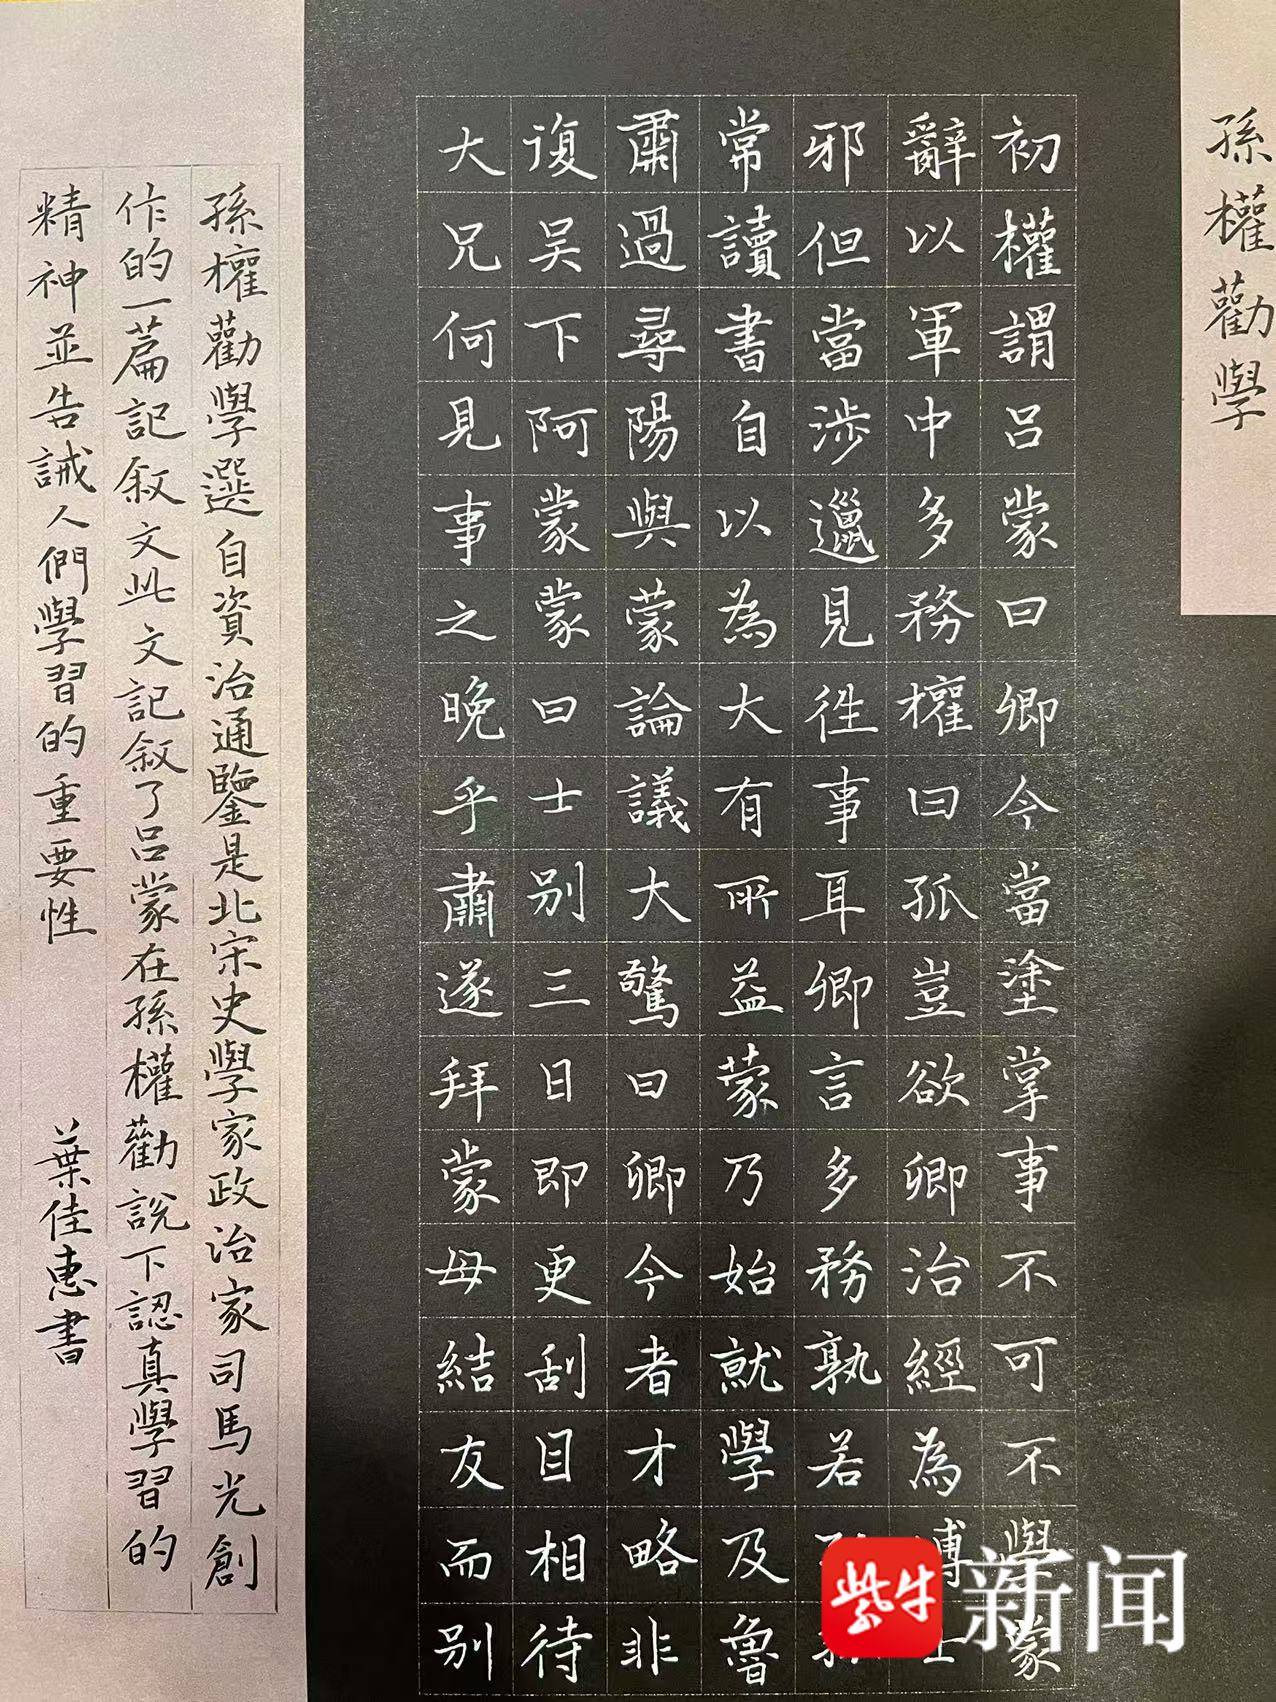 孫權勸學
初權謂呂蒙曰卿今當塗掌事不可不學蒙
辭以軍中多務權曰孤豈欲卿治經為
邪但當涉邋見徃事耳卿言多務孰若
常讀書自以為大有所益蒙乃始就學及魯
肅過尋陽與蒙論議大驚曰卿今者才略非
復吴下阿蒙蒙曰士别三日即更刮目相待
大兄何見事之晚乎肅遂拜蒙母結友而别
孫權勸學選自資治通鑒是北宋史學家政治家司馬光創
作的一篇記叙文此文記叙了呂蒙在孫權勸説下認真學習的
精神並告誡人們學習的重要性 葉佳惠書
紫牛新闻